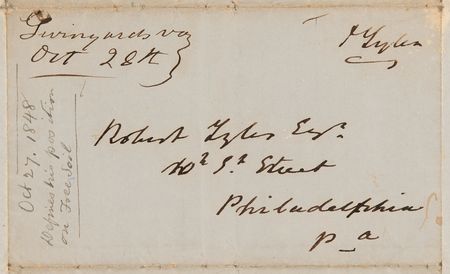 Oct 28th
J Tyler
Oct 27. 1848
Defines his position
on Free Soil
Robert Tyler Esqr
Street
Philadelphia
pa